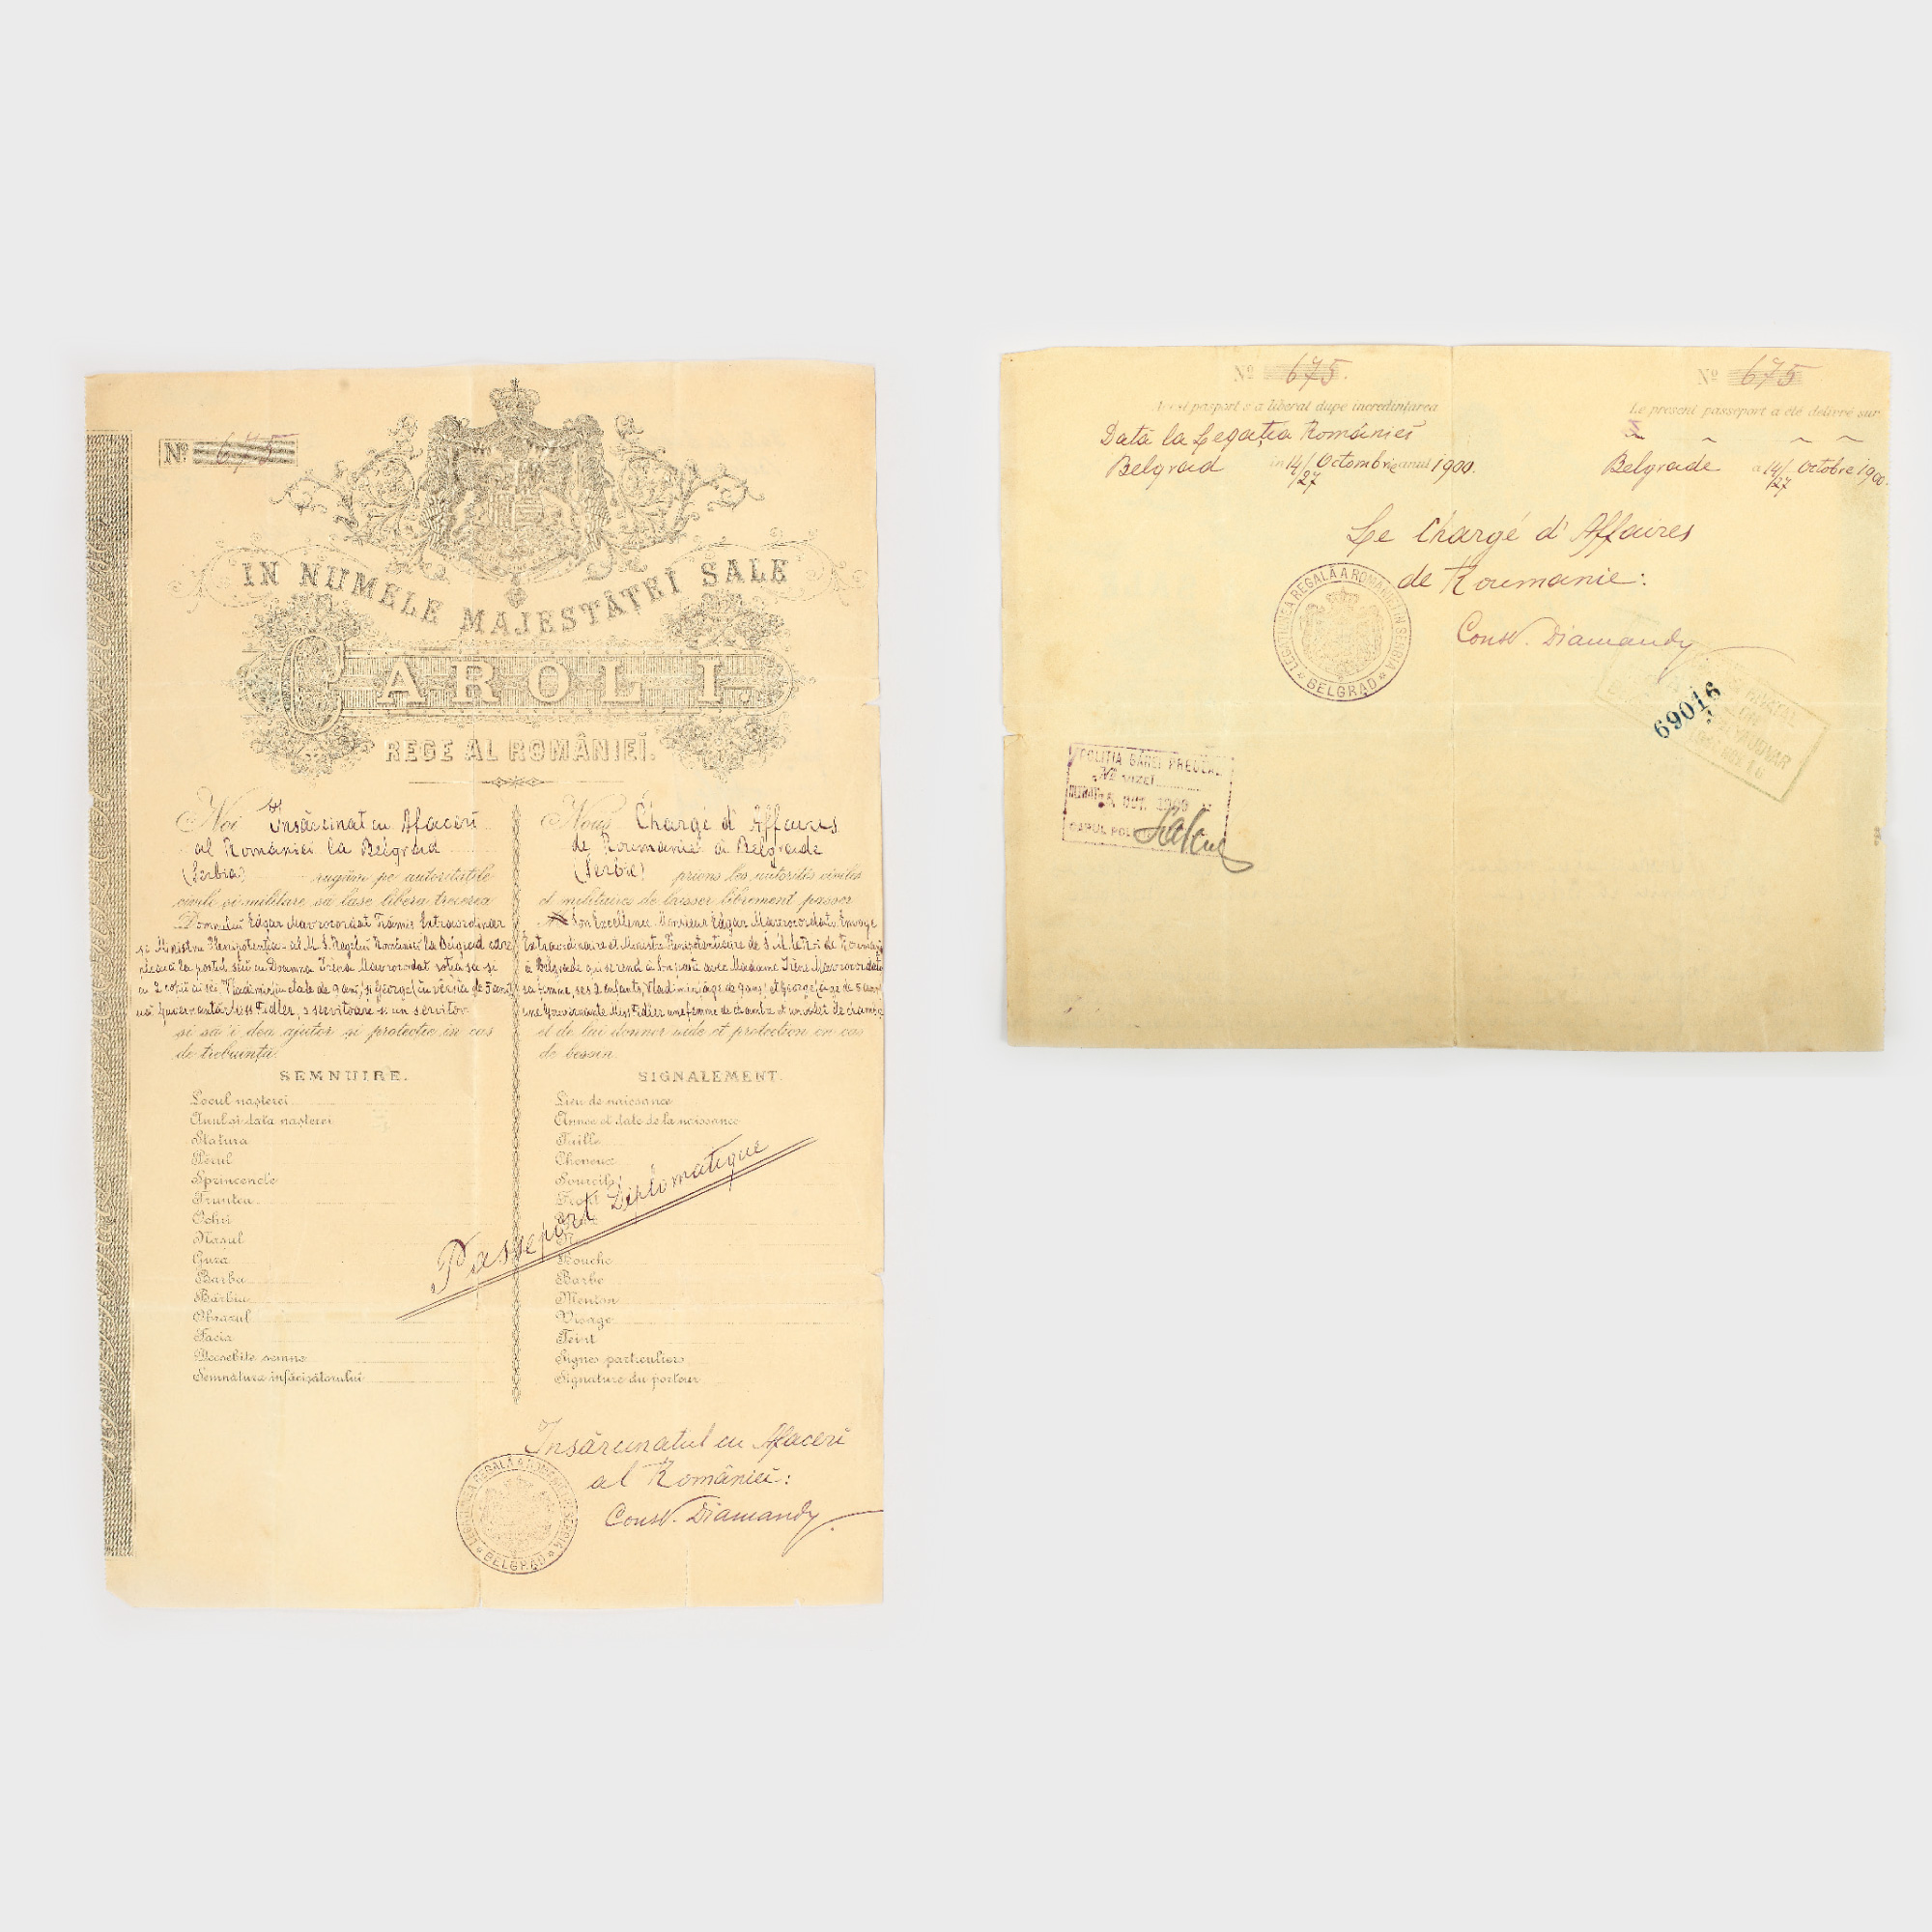 Nº 675
IN NUMELE MAJESTĂȚEI SALE
CAROL I.
REGE AL ROMÂNIEĬ.
Noi Insărcinat cu Afacerĭ
al Româniеĭ la Belgrad
(Serbia) rugăm pe autoritățile
civile și militare sa lase liberă trecerea
Domnuluĭ Edgar Mavrocordat Trămis Extraordinar
și Ministru Plenipotenția- al M. S. Regeluĭ Românieĭ la Belgrad care
pleacă la postul sĕŭ cu Doamna Irena Mavrocordat soția sa și
cu 2 copiĭ aĭ sĕĭ, Vladimir (în etate de 9 anĭ) și George (în vêrsta de 5 anĭ)
Guvernantă Miss Fidler, o servitoare și un servitor
și sa'i dea ajutor și protecție în cas
de trebuință.
SEMNUIRE.
Locul nașterei
Anul și data nașterei
Statura
Pĕrul
Sprincenele
Fruntea
Ochii
Nasul
Gura
Barba
Bărbia
Obrazul
Facia
Deosebite semne
Semnătura înfăcișătorului
Nous Chargé d'Affaires
de Roumanie à Belgrade
(Serbie) prions les autorités civiles
et militaires de laisser librement passer
Son Excellence Monsieur Edgar Mavrocordato Envoyé
Extraordinaire et Ministre Plénipotentiaire de S. M. le Roi de Roumanie
à Belgrade qui se rend à Son poste avec Madame Irène Mavrocordato
sa femme, ses 2 enfants, Vladimir (âgé de 9 ans) et George (âgé de 5 ans)
une Gouvernante Miss Fidler une femme de chambre et un valet de chambre
et de lui donner aide et protection en cas
de besoin.
SIGNALEMENT.
Lieu de naissance
Année et date de la naissance
Taille
Cheveux
Sourcils
Front
Bouche
Barbe
Menton
Visage
Teint
Signes particuliers
Signature du porteur
Passeport Diplomatique
Insărcinatul cu Afacerĭ
al Românieĭ:
Const. Diamandy
LEGAȚIUNEA REGALĂ A ROMÂNIEI IN SERBIA
* BELGRAD *
Nº 675.
Acest pasport s'a liberat dupe incredintarea
Dată la Legația Românieĭ
Belgrad in 14/27 Octombrie anul 1900.
Nº 675
Le present passeport a été délivré sur
Belgrade a 14/27 Octobre 1900.
Le Chargé d'Affaires
de Roumanie:
Const. Diamandy
LEGAȚIUNEA REGALĂ A ROMÂNIEI IN SERBIA
* BELGRAD *
69016
POLIȚIA GĂREI PREDEAL
Nº vizei
OCT. 1900